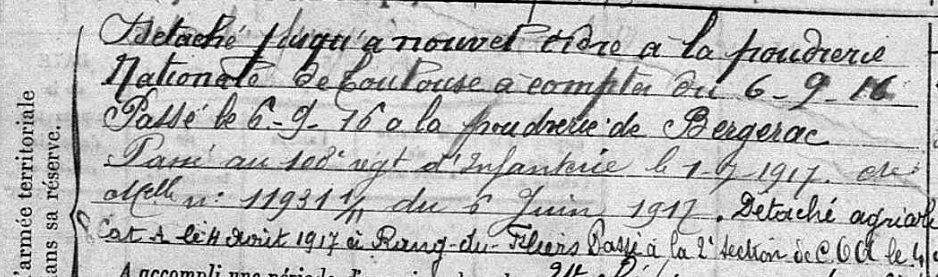 l'armée territoriale
dans sa réserve.
Détaché jusqu'à nouvel ordre à la poudrerie
Nationale de Toulouse à compter du 6-9-16
Passé le 6-9-16 à la poudrerie de Bergerac
Passé au 108e régt d'Infanterie le 1-7-1917.
Melle n: 11931 1/11 du 6 Juin 1917. Détaché agricole
Cat A le 4 Août 1917 à Rang-du-Fliers Passé à la 2e section de COA le
A accompli une période